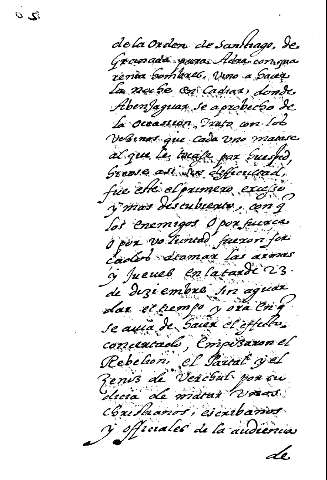 de la orden de Santiago, de
Granada para Adra con qua
renta hombres, vino a hacer
la noche en Cadiar, donde
Abenjaguar se aprobecho de
la ocassion, Trato con los
vezinos que cada uno matase
al que le tuese por huesped,
hizose asi sin difficultad,
fue este el primero excesso
y mas descubierto, con q
los enemigos o por fuerça
o por voluntad fueron for
cados a tomar las armas
y jueves en la tarde 23
de diziembre, sin aguar
dar el tiempo y ora en q
se avia de hacer el effecto
concertado, Empezaron el
Rebelion, el Partal y el
zeniz de Verchul por cu
dicia de matar unos
christianos, escribanos
y officiales de la audiencia
de